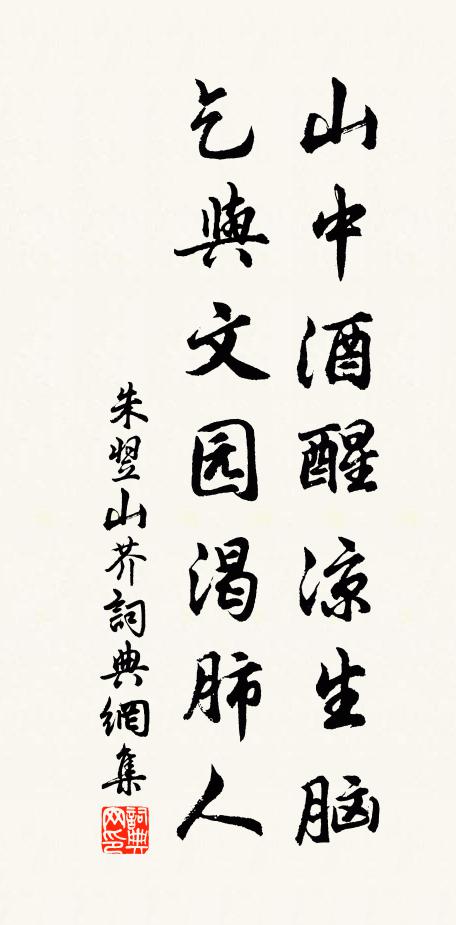 山中酒醒凉生脑
乞與文园渴肺人
朱翌山芥詞典網集
詞典网印